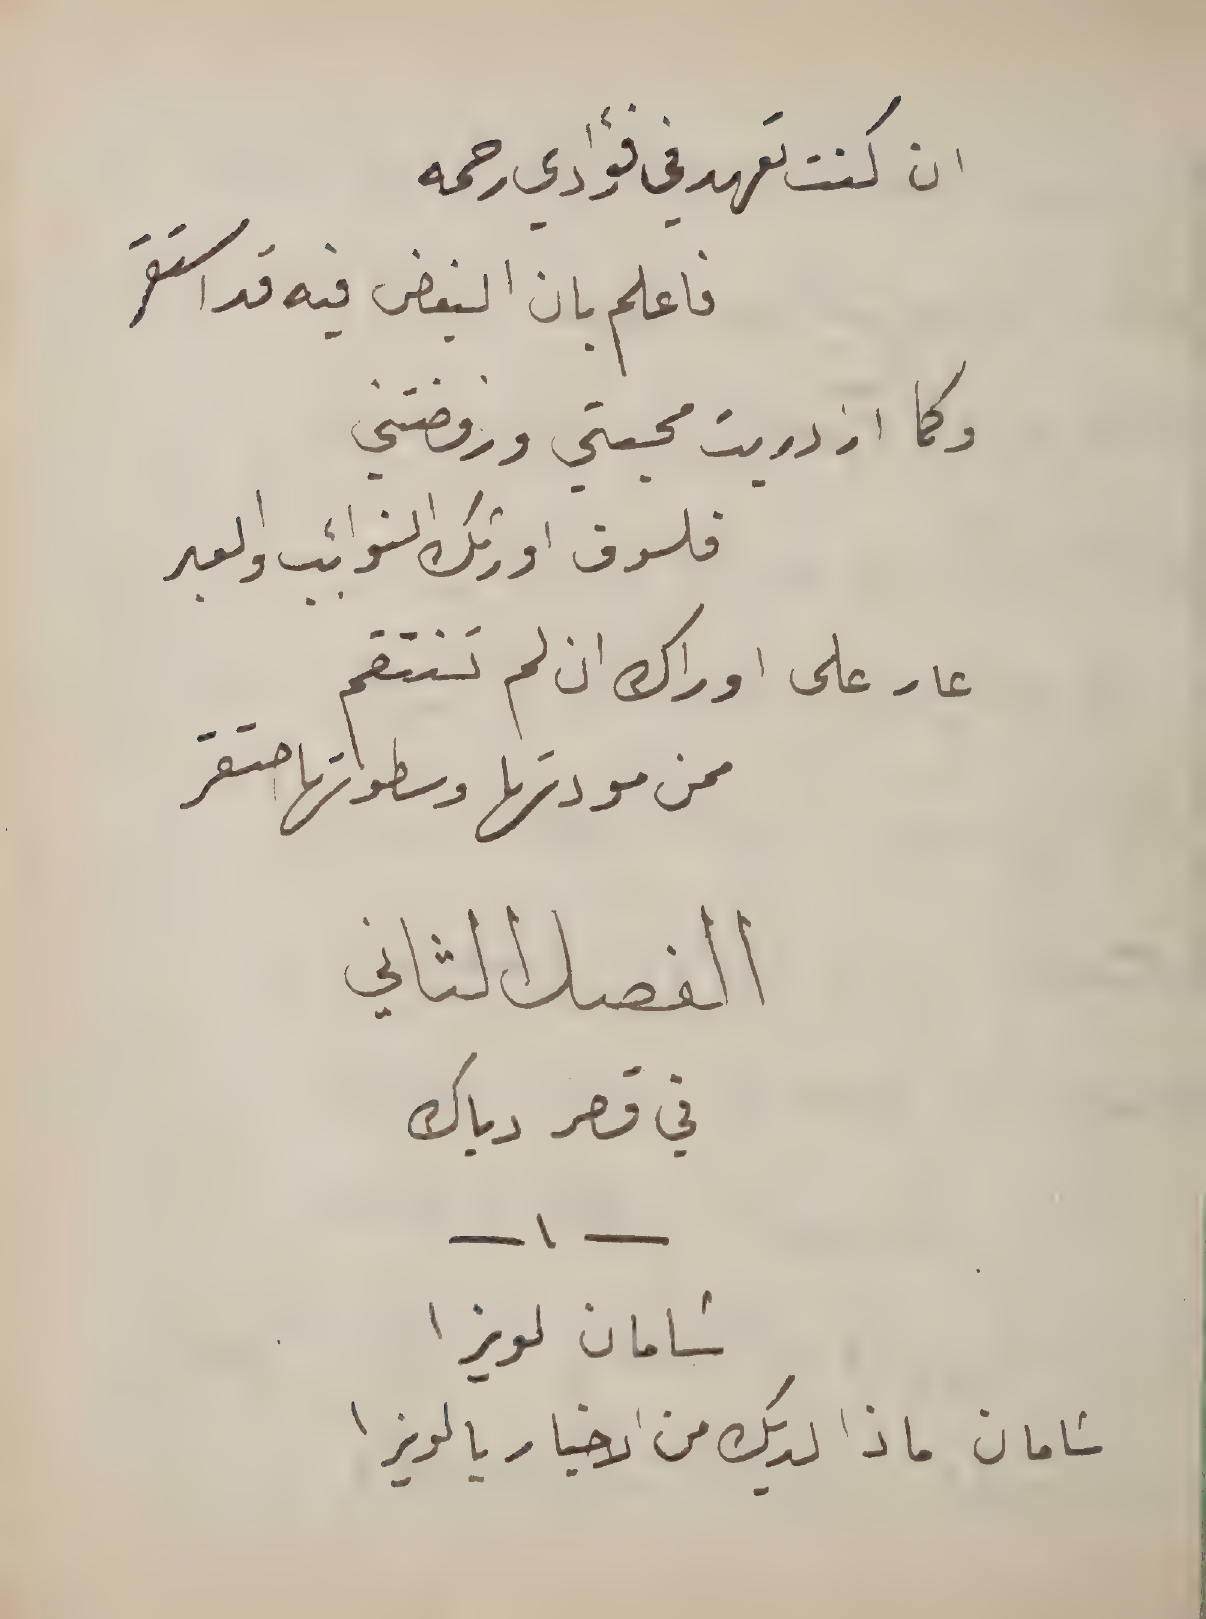 ان كنت تعهد في فؤادي رحمه
فاعلم بان البغض فيه قد استقر
وكما ازدريت محبتي ورفضتني
فلسوف اورثك النوائب والعبر
عار على اوراك ان لم تنتقم
ممن مودتها وسطوتها احتقر
الفصل الثاني
في قصر دياك
— ١ —
شامان لويزا
شامان ماذا لديك من الاخبار يا لويزا